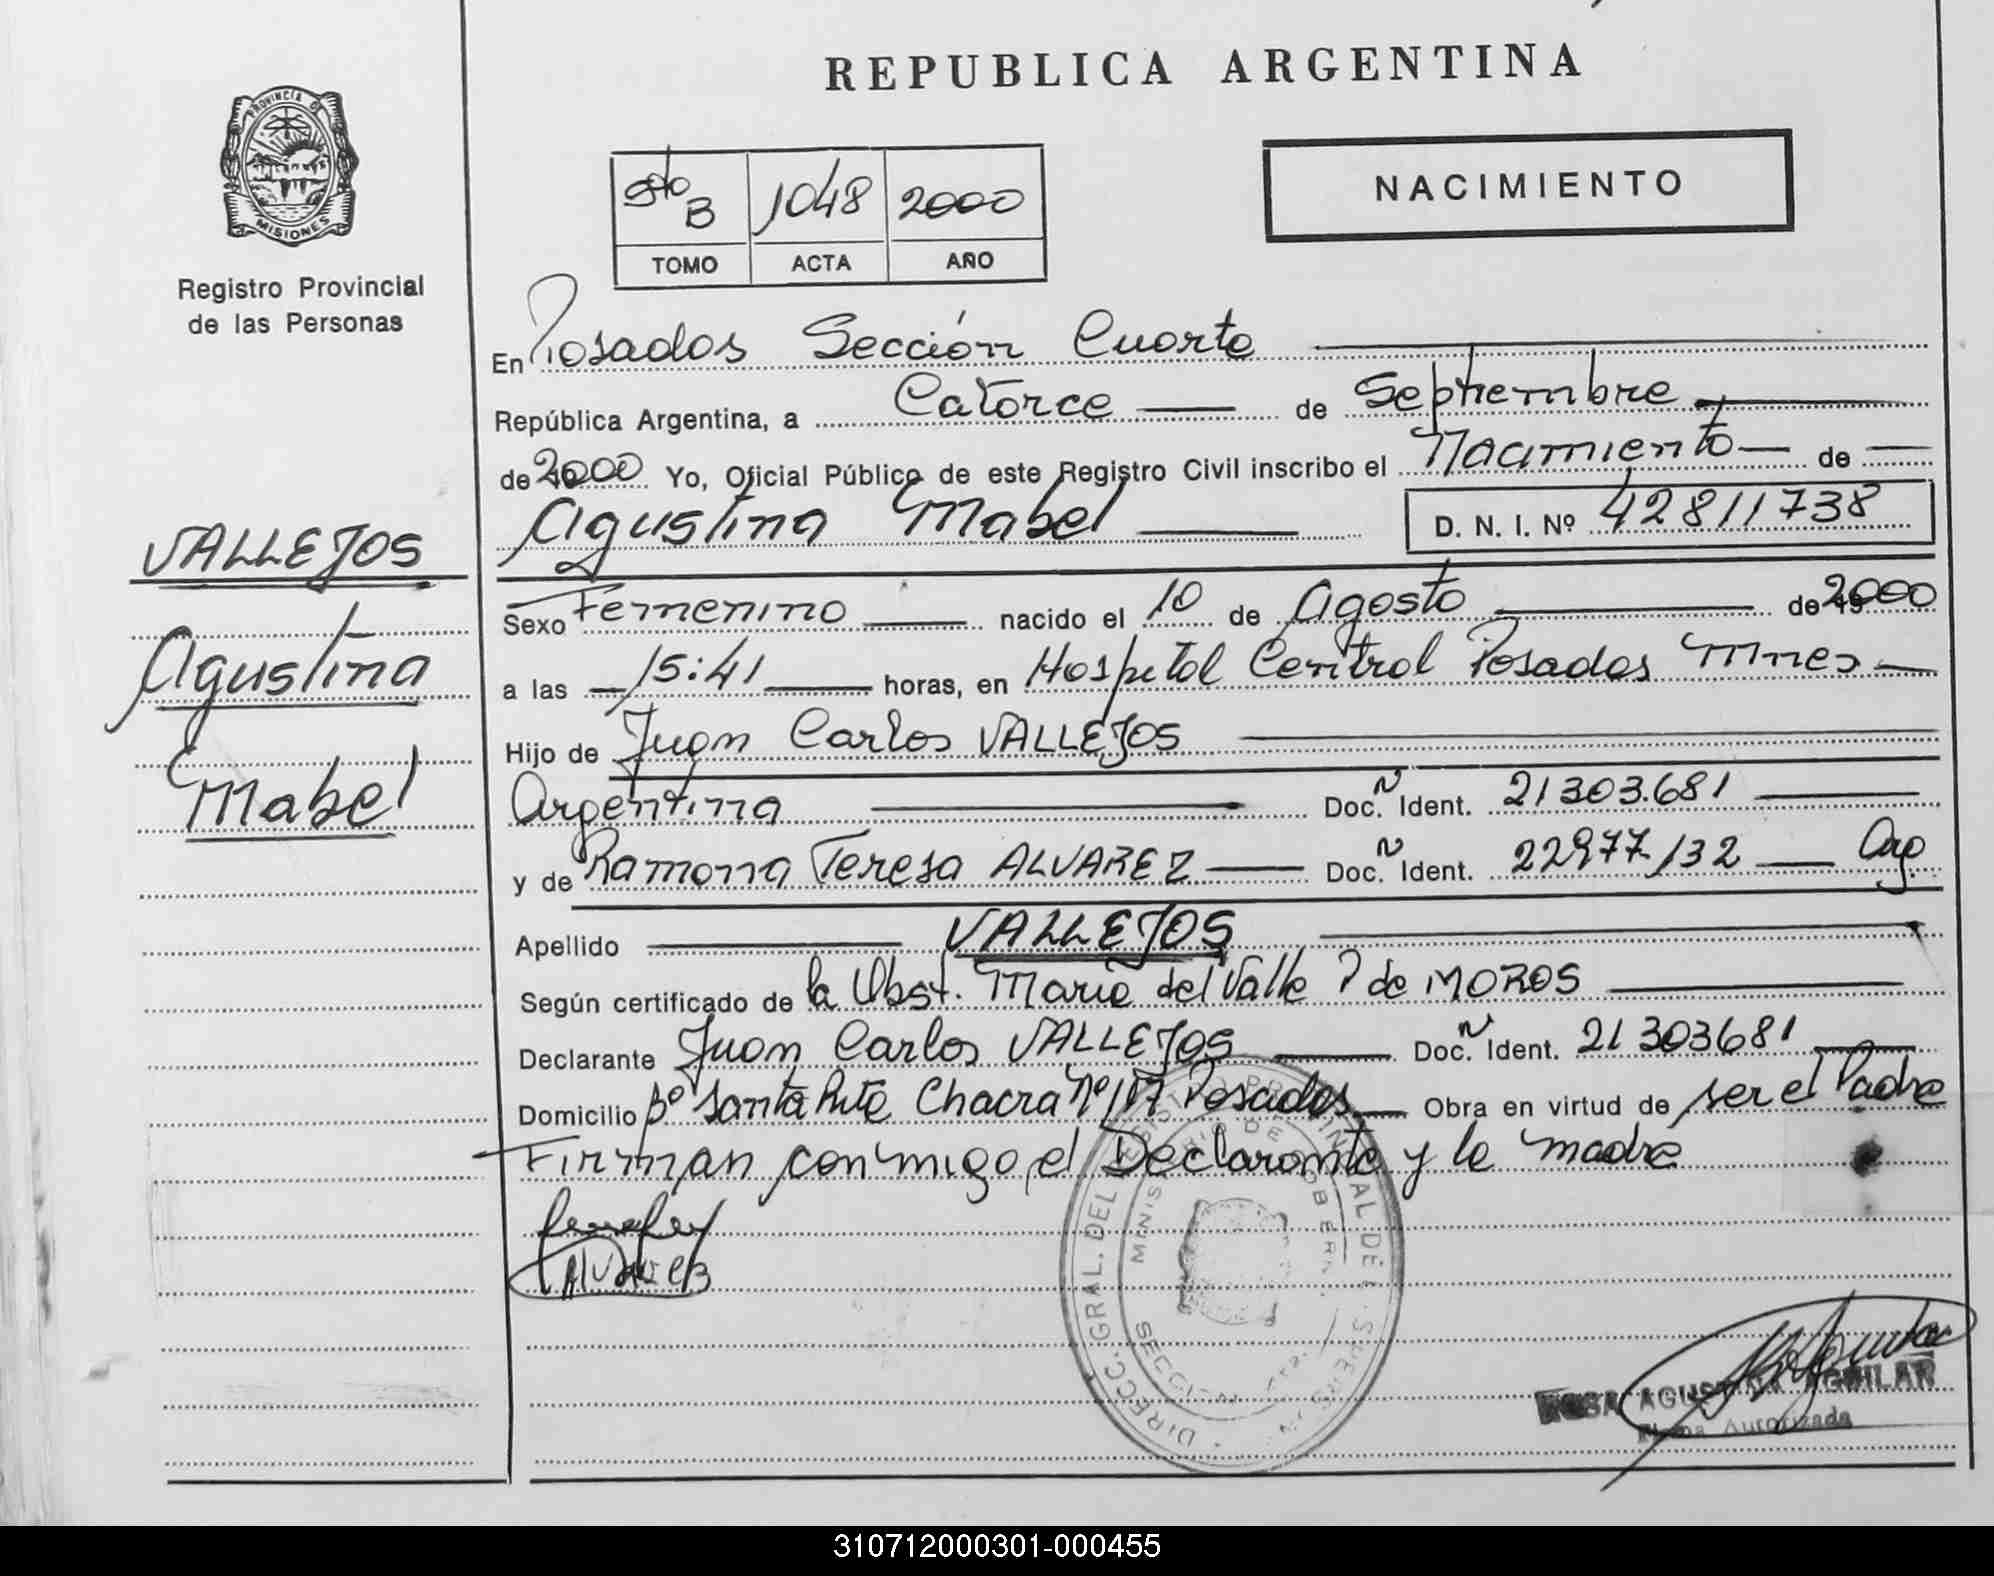 REPUBLICA ARGENTINA
PROVINCIA DE
MISIONES
Registro Provincial
de las Personas
5to B 1048 2000
TOMO ACTA AÑO
NACIMIENTO
En Posadas Sección Cuarta
República Argentina, a Catorce de Septiembre
de 2000 Yo, Oficial Público de este Registro Civil inscribo el Nacimiento de
Agustina Mabel D. N. I. Nº 42811738
VALLEJOS
Agustina
Mabel
Sexo Femenino nacido el 10 de Agosto de 2000
a las 15:41 horas, en Hospital Central Posadas Mnes
Hijo de Juan Carlos VALLEJOS
Argentina Doc. Ident. 21303.681
y de Ramona Teresa ALVAREZ Doc. Ident. 22977132 Arg.
Apellido VALLEJOS
Según certificado de la Obst. Maria del Valle P de MOROS
Declarante Juan Carlos VALLEJOS Doc. Ident. 21303681
Domicilio Bº Santa Rita Chacra Nº 117 Posadas Obra en virtud de ser el Padre
Firman conmigo el Declarante y la madre
ROSA AGUSTINA AGUILAR
Firma Autorizada
310712000301-000455